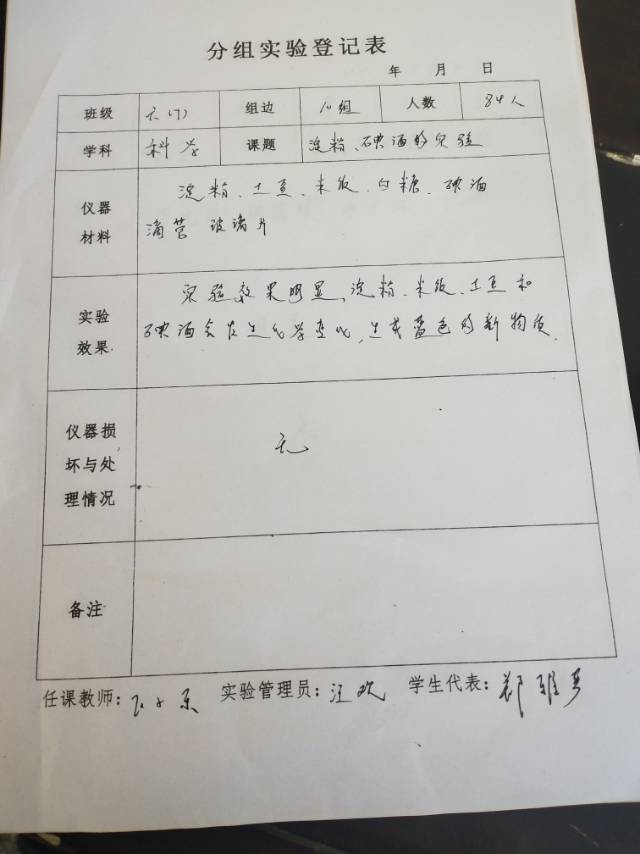 分组实验登记表
年 月 日
班级 六(7) 组边 10组 人数 84人
学科 科学 课题 淀粉、碘酒的实验
仪器材料 淀粉、土豆、米饭、白糖、碘酒
滴管 玻璃片
实验效果 实验效果明显,淀粉、米饭、土豆和
碘酒会发生化学变化,生成蓝色的新物质.
仪器损坏与处理情况 无
备注
任课教师: 实验管理员:汪欢 学生代表:郑